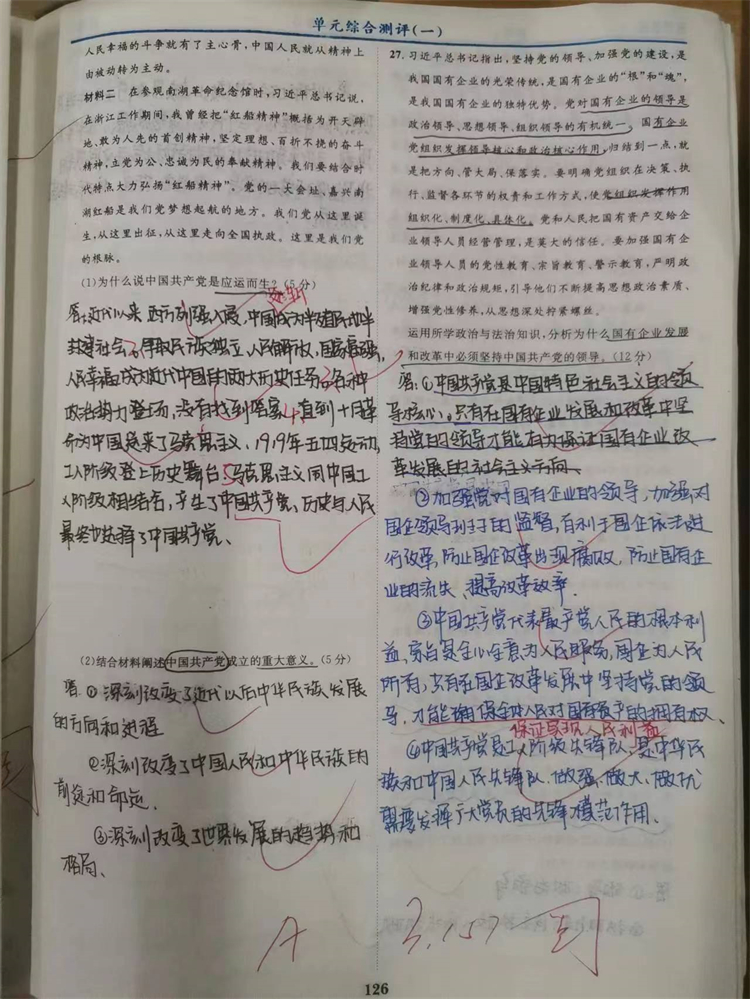 单元综合测评(一)
人民幸福的斗争就有了主心骨,中国人民就从精神上
由被动转为主动。
材料二 在参观南湖革命纪念馆时,习近平总书记说,
在浙江工作期间,我曾经把“红船精神”概括为开天辟
地、敢为人先的首创精神,坚定理想、百折不挠的奋斗
精神,立党为公、忠诚为民的奉献精神。我们要结合时
代特点大力弘扬“红船精神”。党的一大会址、嘉兴南
湖红船是我们党梦想起航的地方。我们党从这里诞
生,从这里出征,从这里走向全国执政。这里是我们党
的根脉。
(1)为什么说中国共产党是应运而生?(5分)
答:近代以来 西方列强入侵,中国成为半殖民地半
封建社会。争取民族独立、人民解放,国家富强,
人民幸福成为近代中国的两大历史任务。各种
政治势力登场,没有找到答案。直到十月革
命为中国送来了马克思主义、1919年五四运动,
工人阶级登上历史舞台,马克思主义同中国工
人阶级相结合,产生了中国共产党,历史与人民
最终选择了中国共产党、
(2)结合材料阐述中国共产党成立的重大意义。(5分)
答:①深刻改变了近代以后中华民族发展
的方向和进程
②深刻改变了中国人民和中华民族的
前途和命运、
③深刻改变了世界发展的趋势和
格局、
27.习近平总书记指出,坚持党的领导、加强党的建设,是
我国国有企业的光荣传统,是国有企业的“根”和“魂”,
是我国国有企业的独特优势。党对国有企业的领导是
政治领导、思想领导、组织领导的有机统一。国有企业
党组织发挥领导核心和政治核心作用,归结到一点,就
是把方向、管大局、保落实。要明确党组织在决策、执
行、监督各环节的权责和工作方式,使党组织发挥作用
组织化、制度化、具体化。党和人民把国有资产交给企
业领导人员经营管理,是莫大的信任。要加强国有企
业领导人员的党性教育、宗旨教育、警示教育,严明政
治纪律和政治规矩,引导他们不断提高思想政治素质、
增强党性修养,从思想深处拧紧螺丝。
运用所学政治与法治知识,分析为什么国有企业发展
和改革中必须坚持中国共产党的领导。(12分)
答:①中国共产党是中国特色社会主义的领
导核心。只有在国有企业发展和改革中坚
持党的领导才能有力保证国有企业改
革发展的社会主义方向、
②加强党对国有企业的领导,加强对
国企领导干部的监督,有利于国企依法进
行改革,防止国企改革出现腐败,防止国有企
业的流失、提高改革效率、
③中国共产党代表最广大人民的根本利
益,宗旨是全心全意为人民服务,国企为人民
所有,只有在国企改革发展中坚持党的领
导,才能确保全体人民对国有资产的拥有权、
保证实现人民利益
④中国共产党是工人阶级先锋队,是中华民
族和中国人民先锋队,做强、做大、做优
需要发挥广大党员的先锋模范作用、
A
126